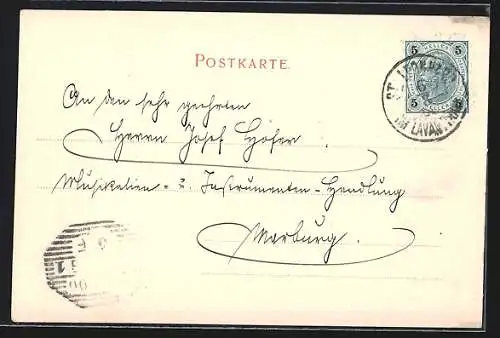 POSTKARTE.
5 HELLER 5
5 5
ST. LEONHARD
IM LAVANTTHALE
An den sehr geehrten
Herrn Josef Höfer
Musikalien- & Instrumenten-Handlung
Marburg.